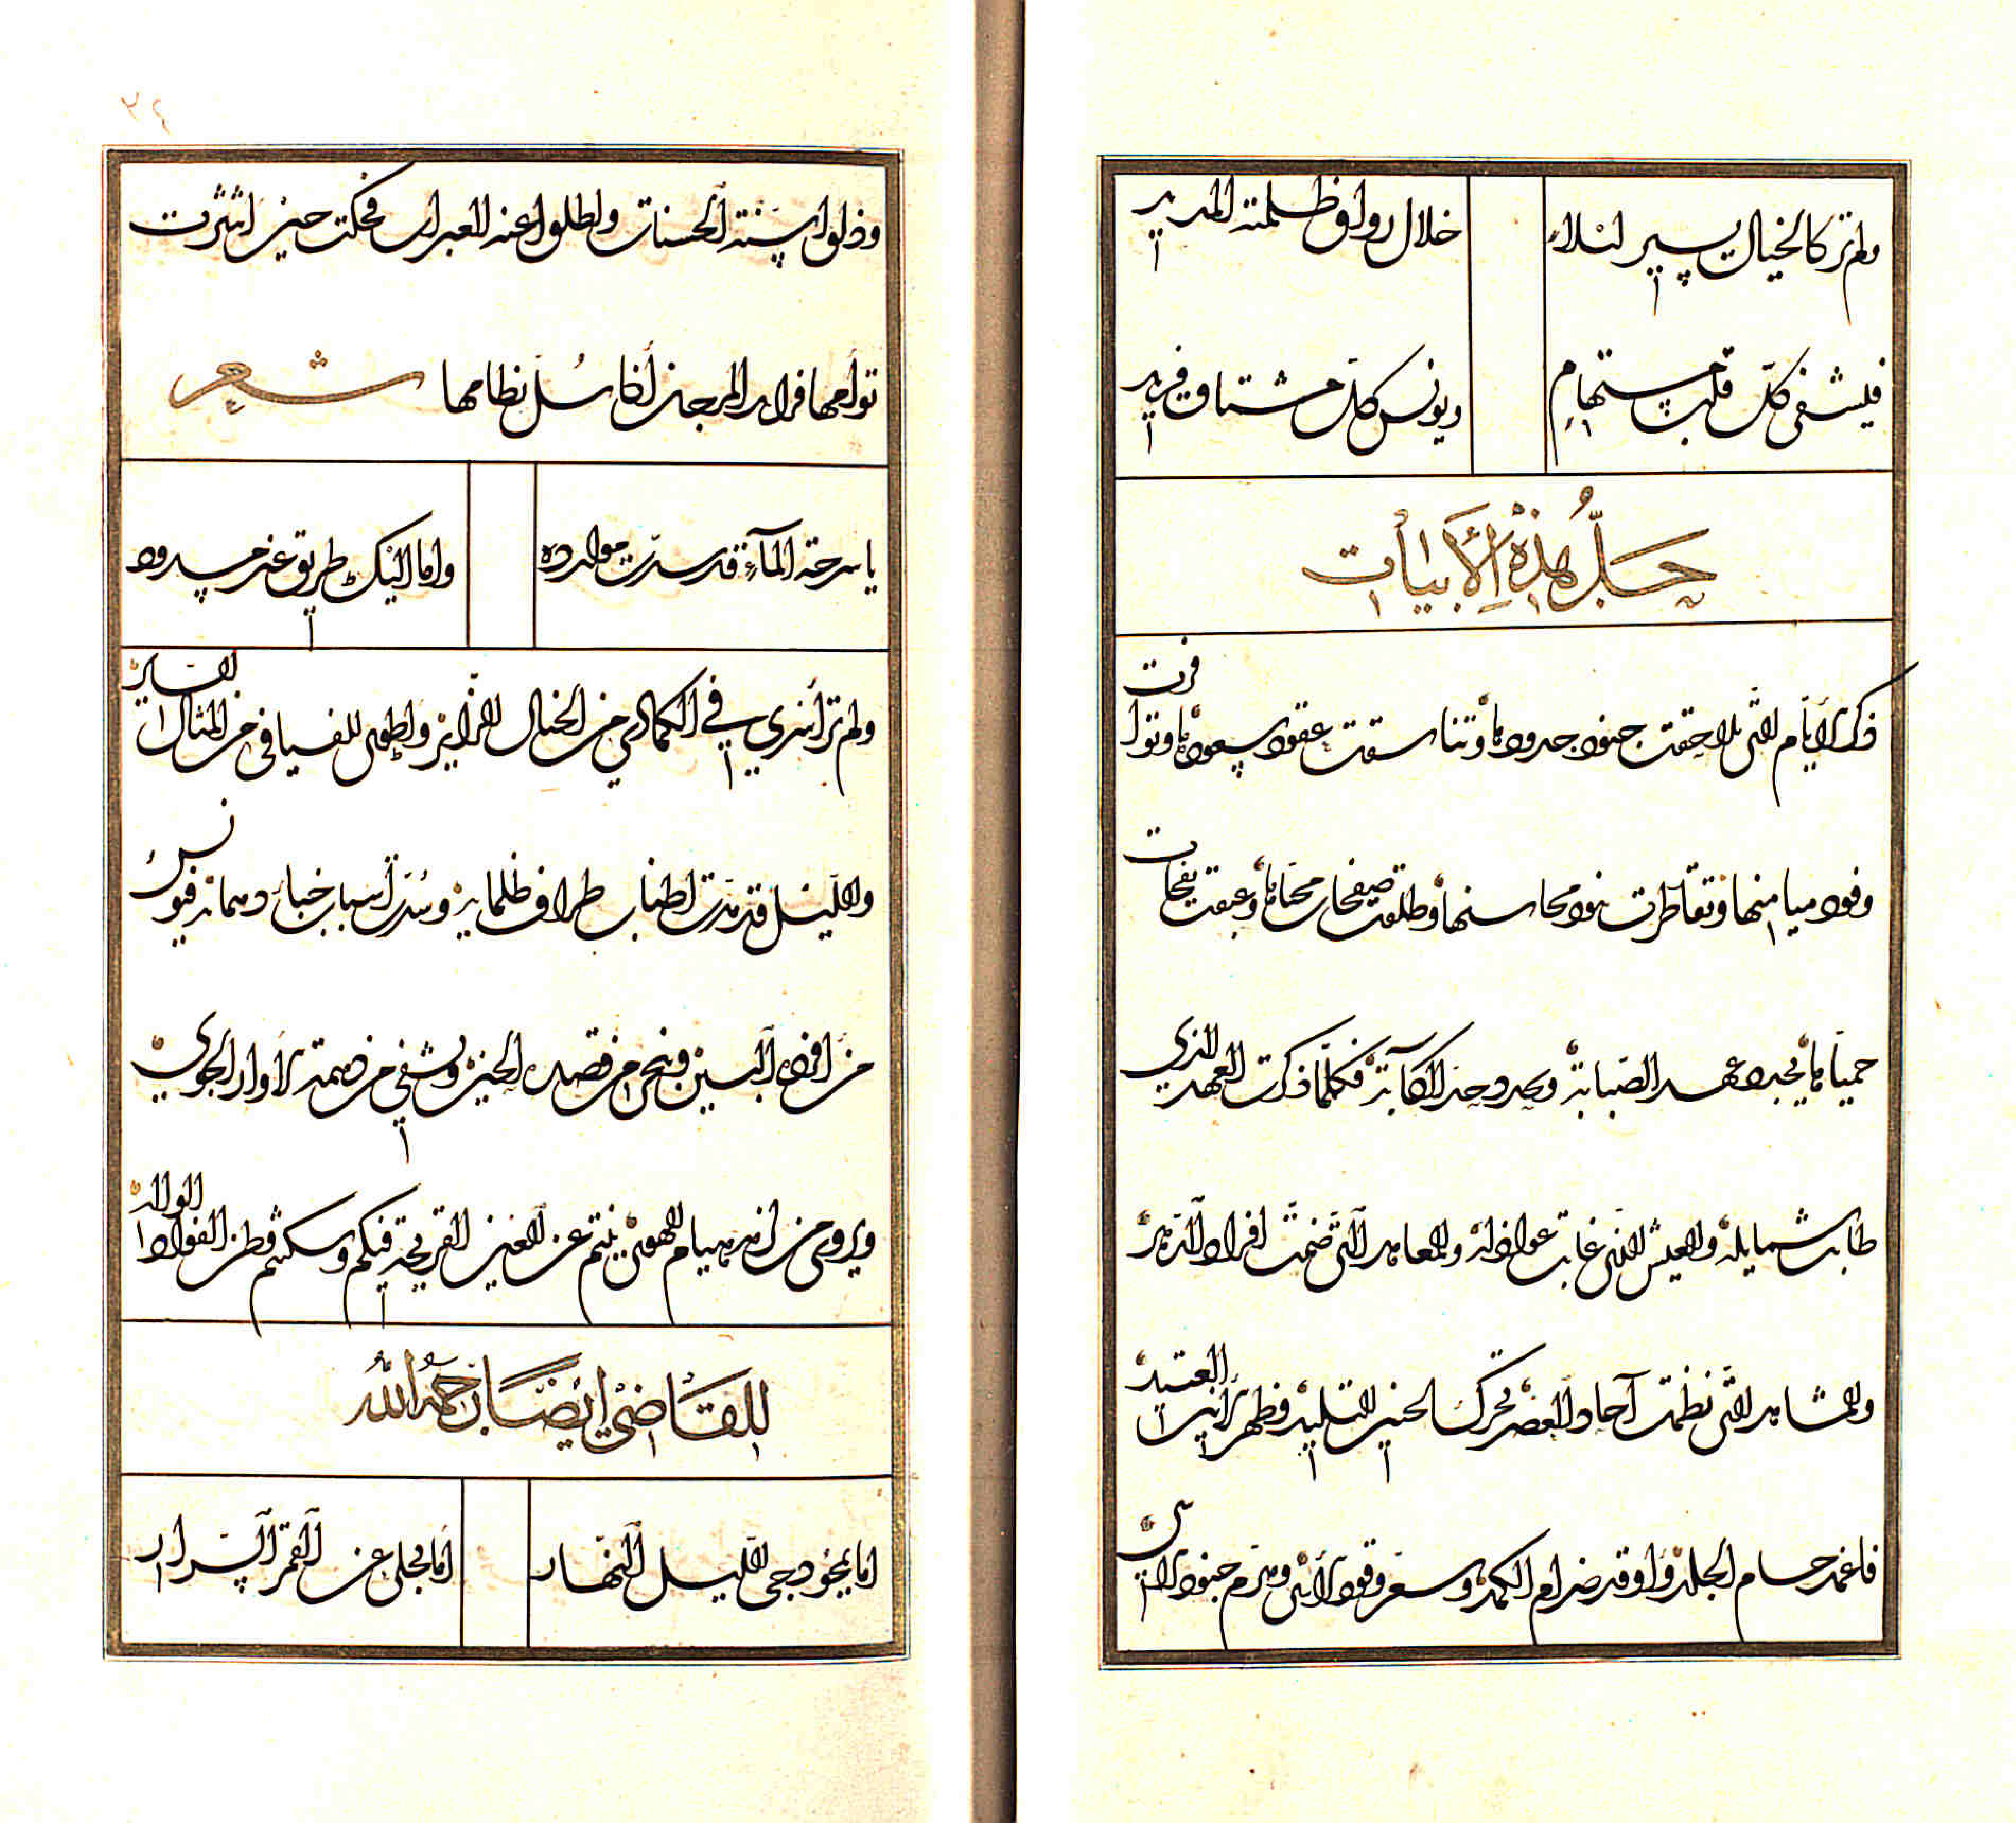 ولم تر كالخيال يسير ليلا
خلال رواق ظلمته المديد
فيشفي كل قلب مستهام
ويونس كل مشتاق فريد
حل هذه الأبيات
ذكر الأيام التي تلاحقت جنود جدودها وتناسقت عقود سعودها وتواترت
وفود ميامنها وتقاطرت بنود محاسنها وطلعت صفحات محياها وعبقت نفحات
حمياها يجدد عهد الصبابة ويحدو حد الكآبة فكلما ذكرت العهد الذي
طابت شمايله والعيش الذي غابت عواذله والمعاهد التي ضمت افراد الدهر
والمشاهد التي نظمت آحاد العصر تحرك الحنين التليد وظهر الأنين العتيد
فاغمد حسام الجلد واوقد ضرام الكمد وسعر وقود الأسى وهزم جنود الاسى
٣٤
وذلوا سنة الحسنات واطلوا عنه العبرات فحكت حين انتثرت
توأمها فرايد المرجان اذا سل نظامها شعر
يا سرحة المآء قد سدت موارده
واما اليك طريق غير مسدود
ولم تر أسري في الكمال من الخيال الزاير واطوى للفيافي من المثال الساير
والليل قد مدت اطناب طراف ظلمايه وسدت أسباب خباء دهمائه فيونس
من افرده البين وينحى من قصده الحين ويشفي من صمته أوار الجوى
ويروى من هيام الهوى ينتم عن العين القريحة فيكم وسكنتم وطن الفواد الواله
للقاضي ايضا رحمه الله
اما يمحو دجى الليل النهار
أما يجلى عن القمر السرار